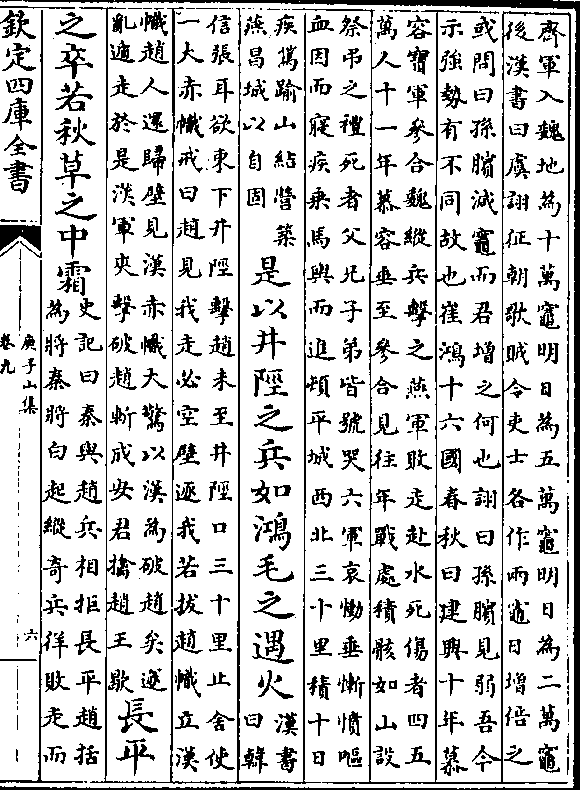 齊軍入魏地為十萬竈明日為五萬竈明日為二萬竈
後漢書曰虞詡征朝歌賊令吏士各作兩竈日增倍之
或問曰孫臏減竈而君增之何也詡曰孫臏見弱吾今
示強勢有不同故也崔鴻十六國春秋曰建興十年慕
容寶軍參合魏縱兵擊之燕軍敗走赴水死傷者四五
萬人十一年慕容垂至參合見往年戰處積骸如山設
祭弔之禮死者父兄子弟皆號哭六軍哀慟垂慚憤嘔
血因而寢疾乘馬輿而進頓平城西北三十里積十日
疾篤踰山結營築
燕昌城以自固
是以井陘之兵如鴻毛之遇火
漢書
曰韓
信張耳欲東下井陘擊趙未至井陘口三十里止舍使
一大赤幟戒曰趙見我走必空壁逐我若拔趙幟立漢
幟趙人還歸壁見漢赤幟大驚以漢為破趙矣遂
亂遁走於是漢軍夾擊破趙斬成安君擒趙王歇
長平
之卒若秋草之中霜
史記曰秦與趙兵相拒長平趙括
為將秦將白起縱奇兵佯敗走而
欽定四庫全書
庾子山集
卷九
六